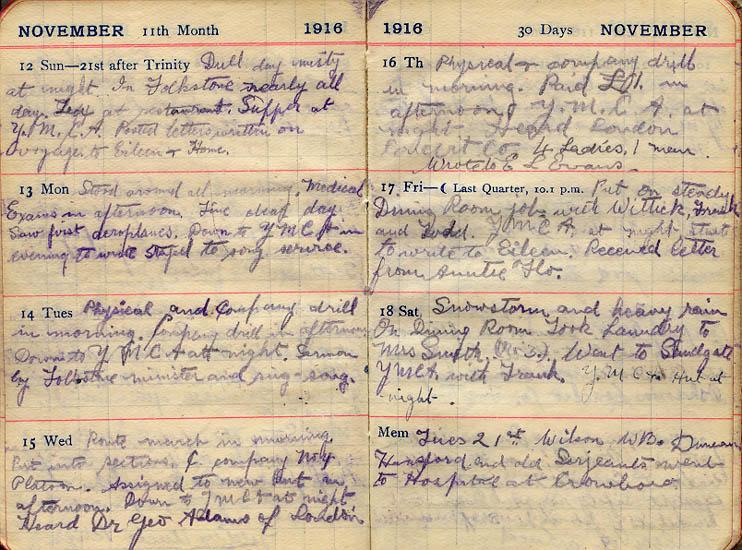 NOVEMBER 11th Month 1916
12 Sun—21st after Trinity Dull day misty
at night. In Folkstone nearly all
day. Tea at restaurant. Supper at
Y.M.C.A. Posted letters written on
voyage to Eileen & Home.
13 Mon Stood around all morning. Medical
Exams in afternoon. Fine clear day
Saw first aeroplanes. Down to Y M C A in
evening to write stayed to song service.
14 Tues Physical and Company drill
in morning. Company drill in afternoon
Down to Y M C A at night. Sermon
by Folkstone minister and sing-song.
15 Wed Route march in morning.
Put into sections. C company No 4
Platoon. Assigned to new hut in
afternoon. Down to Y M C A at night
Heard Dr Geo Adams of London
1916 30 Days NOVEMBER
16 Th Physical & company drill
in morning. Paid in
afternoon. Y.M.C.A. at
night. Heard London
Concert Co. 4 Ladies, 1 man.
Wrote to E L Evans.
17 Fri—( Last Quarter, 10.1 p.m. Put on steady
Dining Room job with Wittick, Frank
and Todd. Y M C A. at night start
to write to Eileen. Received letter
from Auntie Flo.
18 Sat Snowstorm and heavy rain
On Dining Room Took Laundry to
Mrs Smith, (No 3). Went to Sandgate
YMCA. with Frank. Y.M.C.A. Hut at
night.
Mem Tues 21st Wilson WB. Duncan
Hansford and old Serjeants went
to Hospital at Crowboro